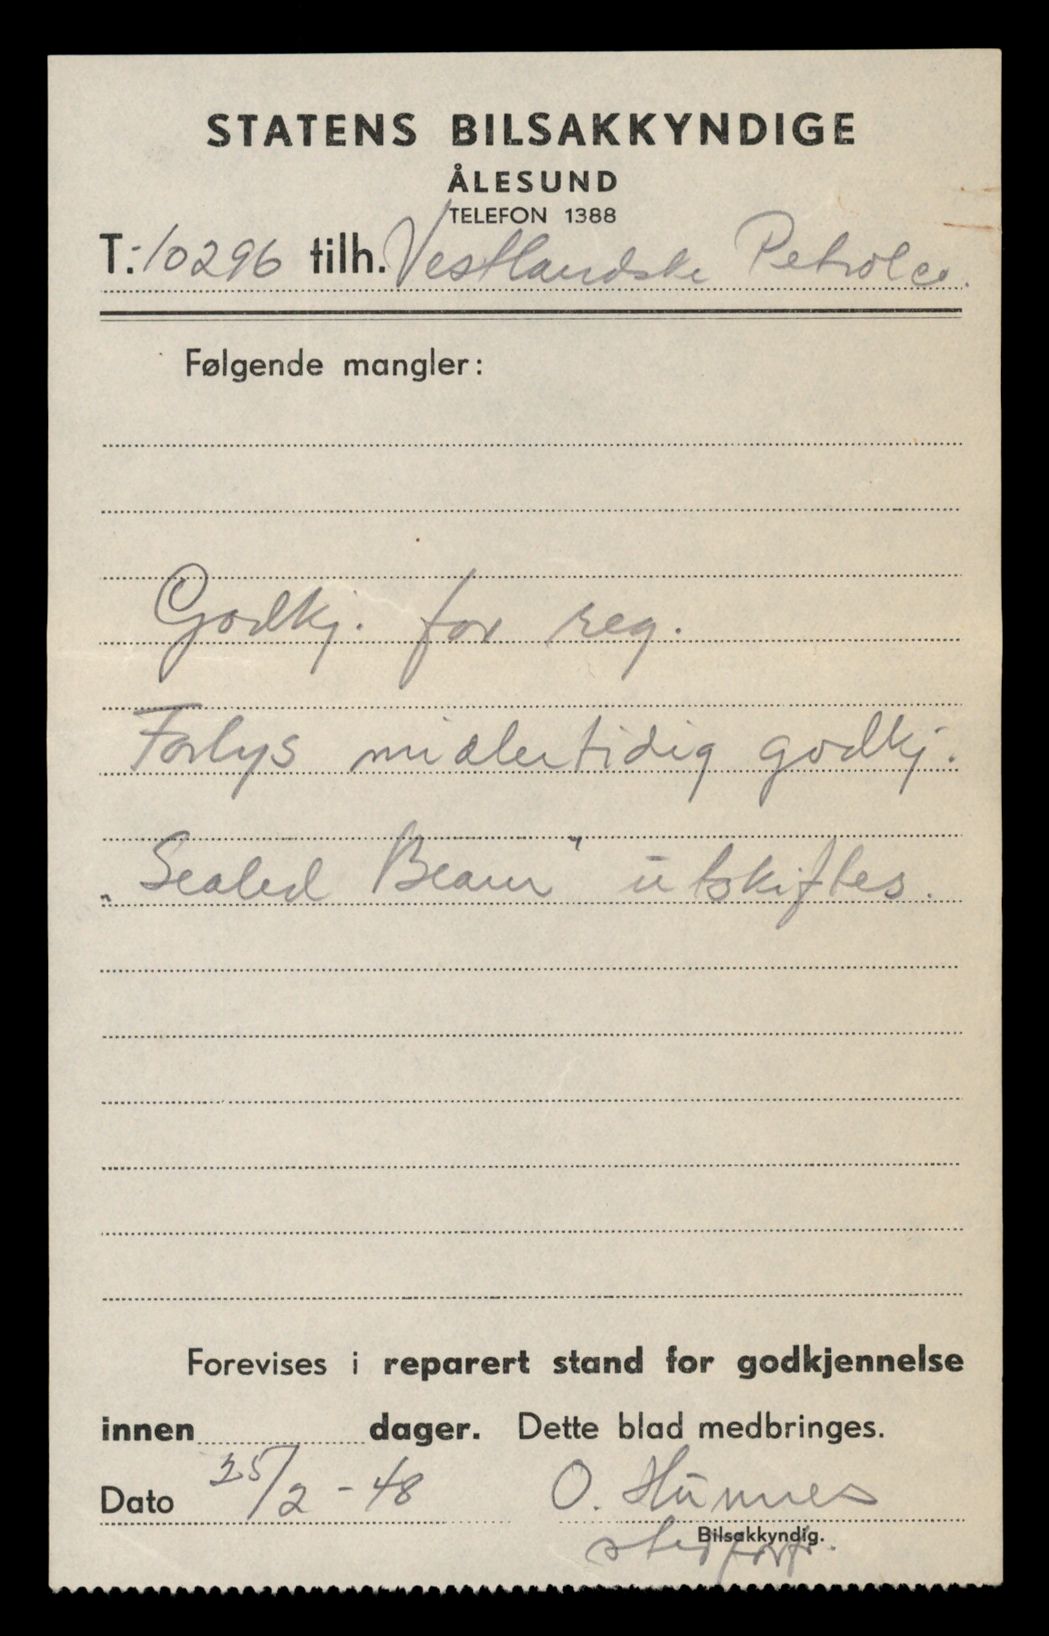 STATENS BILSAKKYNDIGE
ÅLESUND
TELEFON 1388
T.-10296 tilh. Vestlandske Petrolco.
Følgende mangler:
Godkj. for reg.
Forlys midlertidig godkj.
„Sealed Beam" utskiftes.
Forevises i reparert stand for godkjennelse
innen dager. Dette blad medbringes.
Dato 25/2-48 O. Hunnes
Bilsakkyndig.
stedfortr.